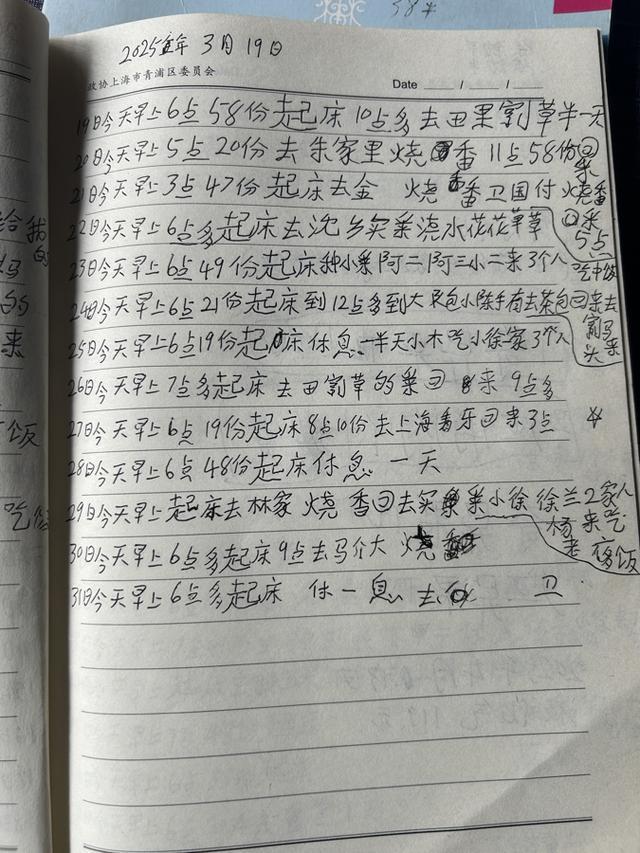 2025年 3月 19日
政协上海市青浦区委员会
Date / /
19日今天早上6点58份起床10点多去田里割草半一天
20日今天早上5点20份去朱家里烧香11点58份回来
21日今天早上3点47份起床去金 烧香卫国付烧香回来5点
22日今天早上6点多起床去沈乡买菜浇水花花草草
23日今天早上6点49份起床种小菜阿二阿三小二来3个人吃中饭
24日今天早上6点21份起床到12点多到大 包小陈 去茶包回来去
25日今天早上6点19份起床休息一半天小木吃小徐家3个人
26日今天早上7点多起床去田割草的菜回来9点多
27日今天早上6点19份起床8点10份去上海看牙回来3点
28日今天早上6点48份起床休息一天
29日今天早上起床去林家烧香回去买菜小徐徐兰2家人来吃夜饭
30日今天早上6点多起床9点去马个大烧香
31日今天早上6点多起床 休一息 去 卫